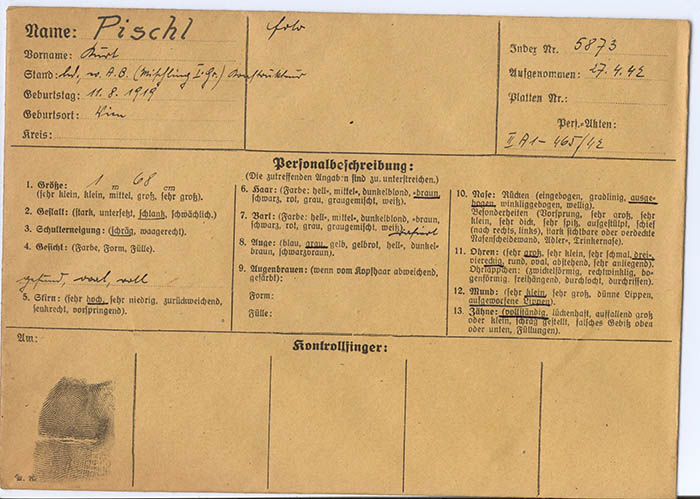 Name: Pischl
Vorname: Kurt
Stand: led, A. B. (Mischling I. Gr.) Konstrukteur
Geburtstag: 11. 8. 1919
Geburtsort: Wien
Kreis:
Index Nr. 5873
Aufgenommen: 27. 4. 42
Platten Nr.:
Pers.-Akten:
II A1 – 465/42
Personalbeschreibung:
(Die zutreffenden Angab:n sind zu unterstreichen.)
1. Größe: 1 m 68 cm
(sehr klein, klein, mittel, groß, sehr groß).
2. Gestalt: (stark, untersetzt, schlank, schwächlich.)
3. Schulterneigung: (schräg, waagerecht.)
4. Gesicht: (Farbe, Form, Fülle).
gesund, oval, voll
5. Stirn: (sehr hoch, sehr niedrig, zurückweichend,
senkrecht, vorspringend).
6. Haar: (Farbe: hell-, mittel-, dunkelblond, -braun,
schwarz, rot, grau, graugemischt, weiß).
7. Bart: (Farbe: hell-, mittel-, dunkelblond, -braun,
schwarz, rot, grau, graugemischt, weiß).
rasiert
8. Auge: (blau, grau, gelb, gelbrot, hell-, dunkel-
braun, schwarzbraun).
9. Augenbrauen: (wenn vom Kopfhaar abweichend,
gefärbt):
Form:
Fülle:
10. Nase: Rücken (eingebogen, gradlinig, ausge-
bogen, winkliggebogen, wellig).
Besonderheiten (Vorsprung, sehr groß, sehr
klein, sehr dick, sehr spitz, aufgestülpt, schief
(nach rechts, links), stark sichtbare oder verdeckte
Nasenscheidewand, Adler-, Trinkernase).
11. Ohren: (sehr groß, sehr klein, sehr schmal, drei-,
viereckig, rund, oval, abstehend, sehr anliegend).
Ohrläppchen: (zwickelförmig, rechtwinklig, bo-
genförmig, freihängend, durchlocht, durchrissen).
12. Mund: (sehr klein, sehr groß, dünne Lippen,
aufgeworfene Lippen).
13. Zähne: (vollständig, lückenhaft, auffallend groß
oder klein, schräg gestellt, falsches Gebiß oben
oder unten, Füllungen).
Kontrollfinger:
Am: